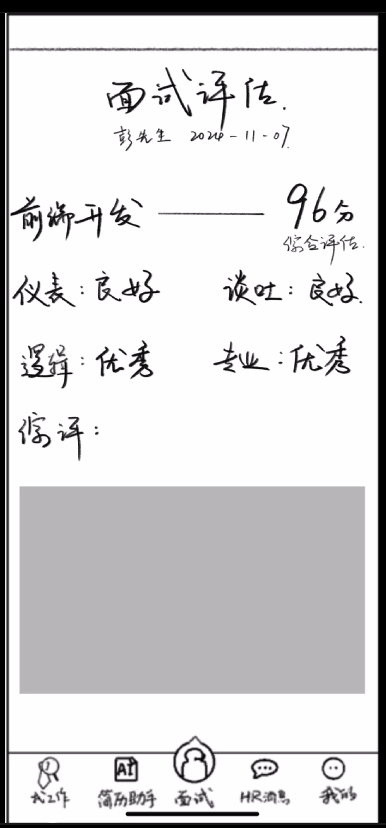 面试评估.
彭先生 2024-11-07.
前端开发 —— 96分
综合评估.
仪表：良好 谈吐：良好.
逻辑：优秀 专业：优秀
综评：
找工作 AI 简历助手 面试 HR消息 我的